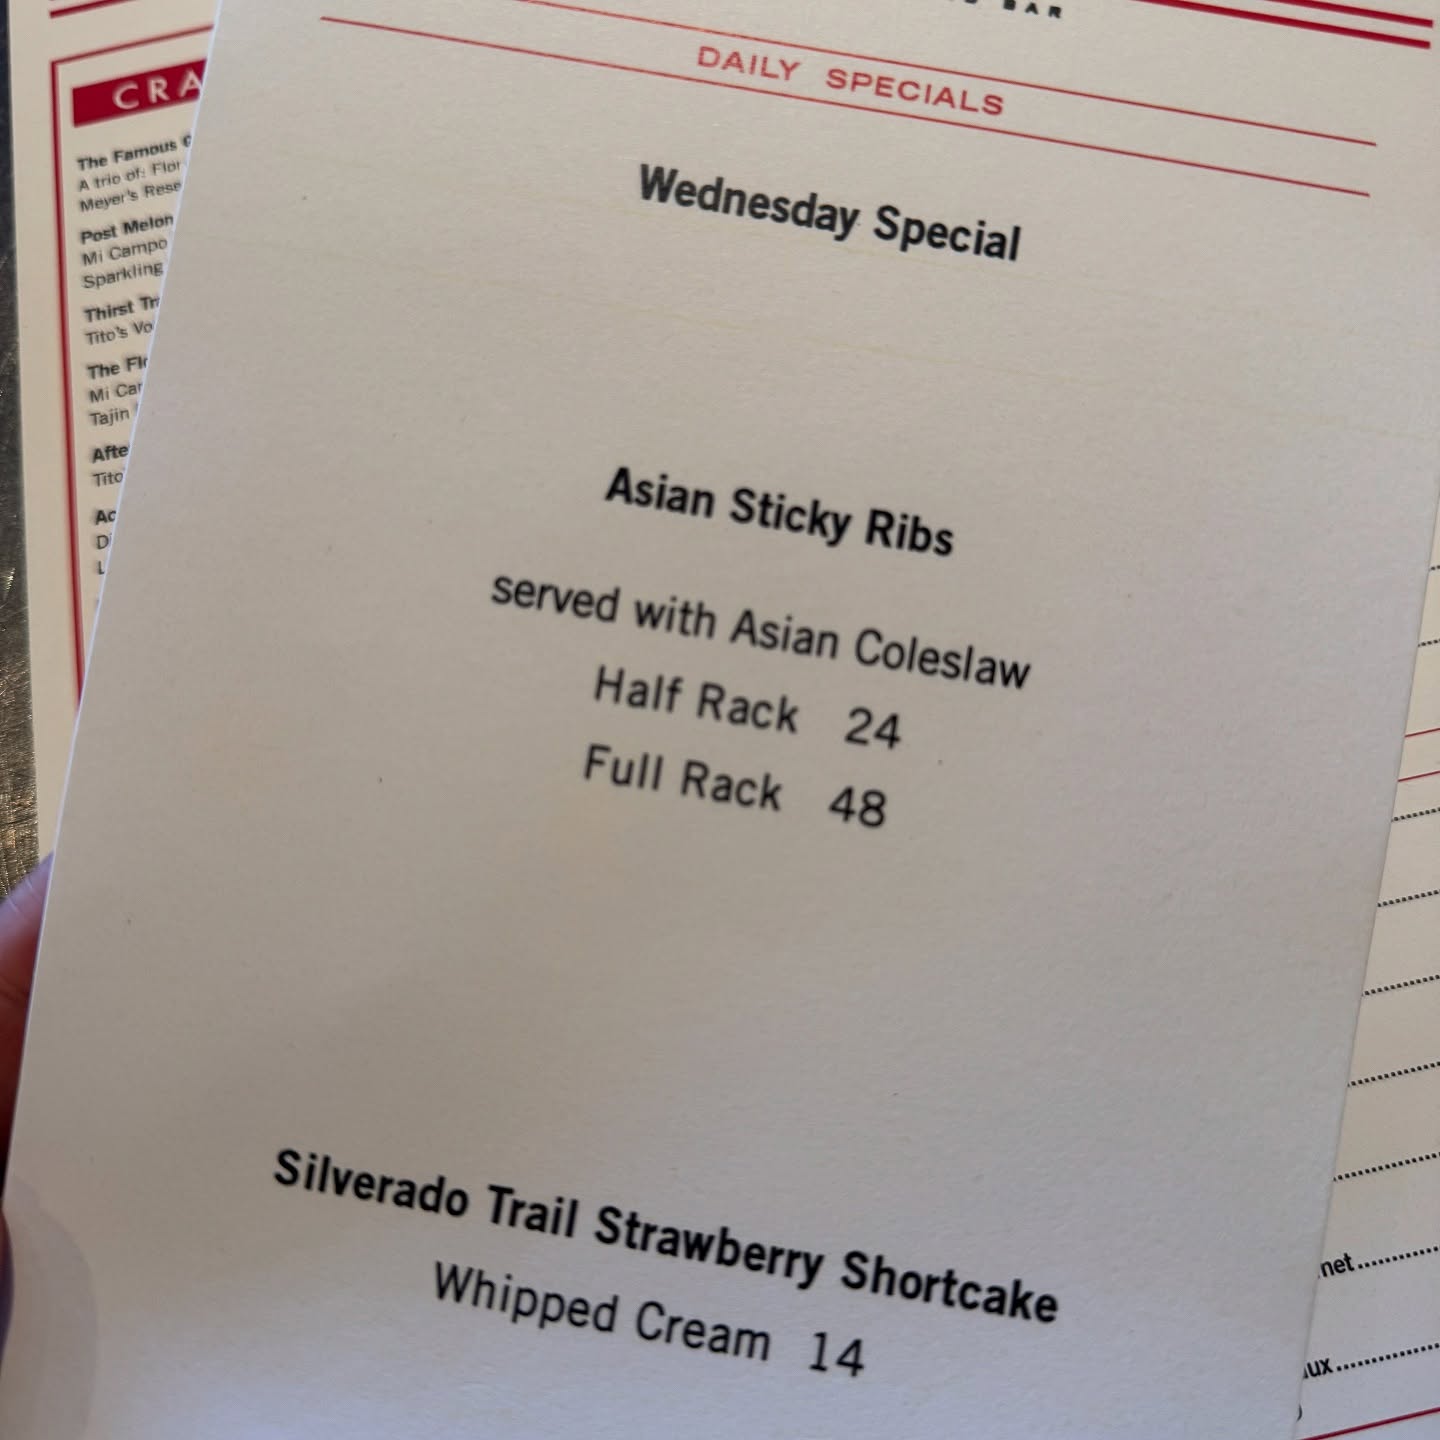 BAR
DAILY SPECIALS
Wednesday Special
Asian Sticky Ribs
served with Asian Coleslaw
Half Rack 24
Full Rack 48
Silverado Trail Strawberry Shortcake
Whipped Cream 14
The Famous
A trio of:
Meyer's
Post Melon
Mi Campo
Sparkling
Thirst
Tito's
The
Mi
Tajin